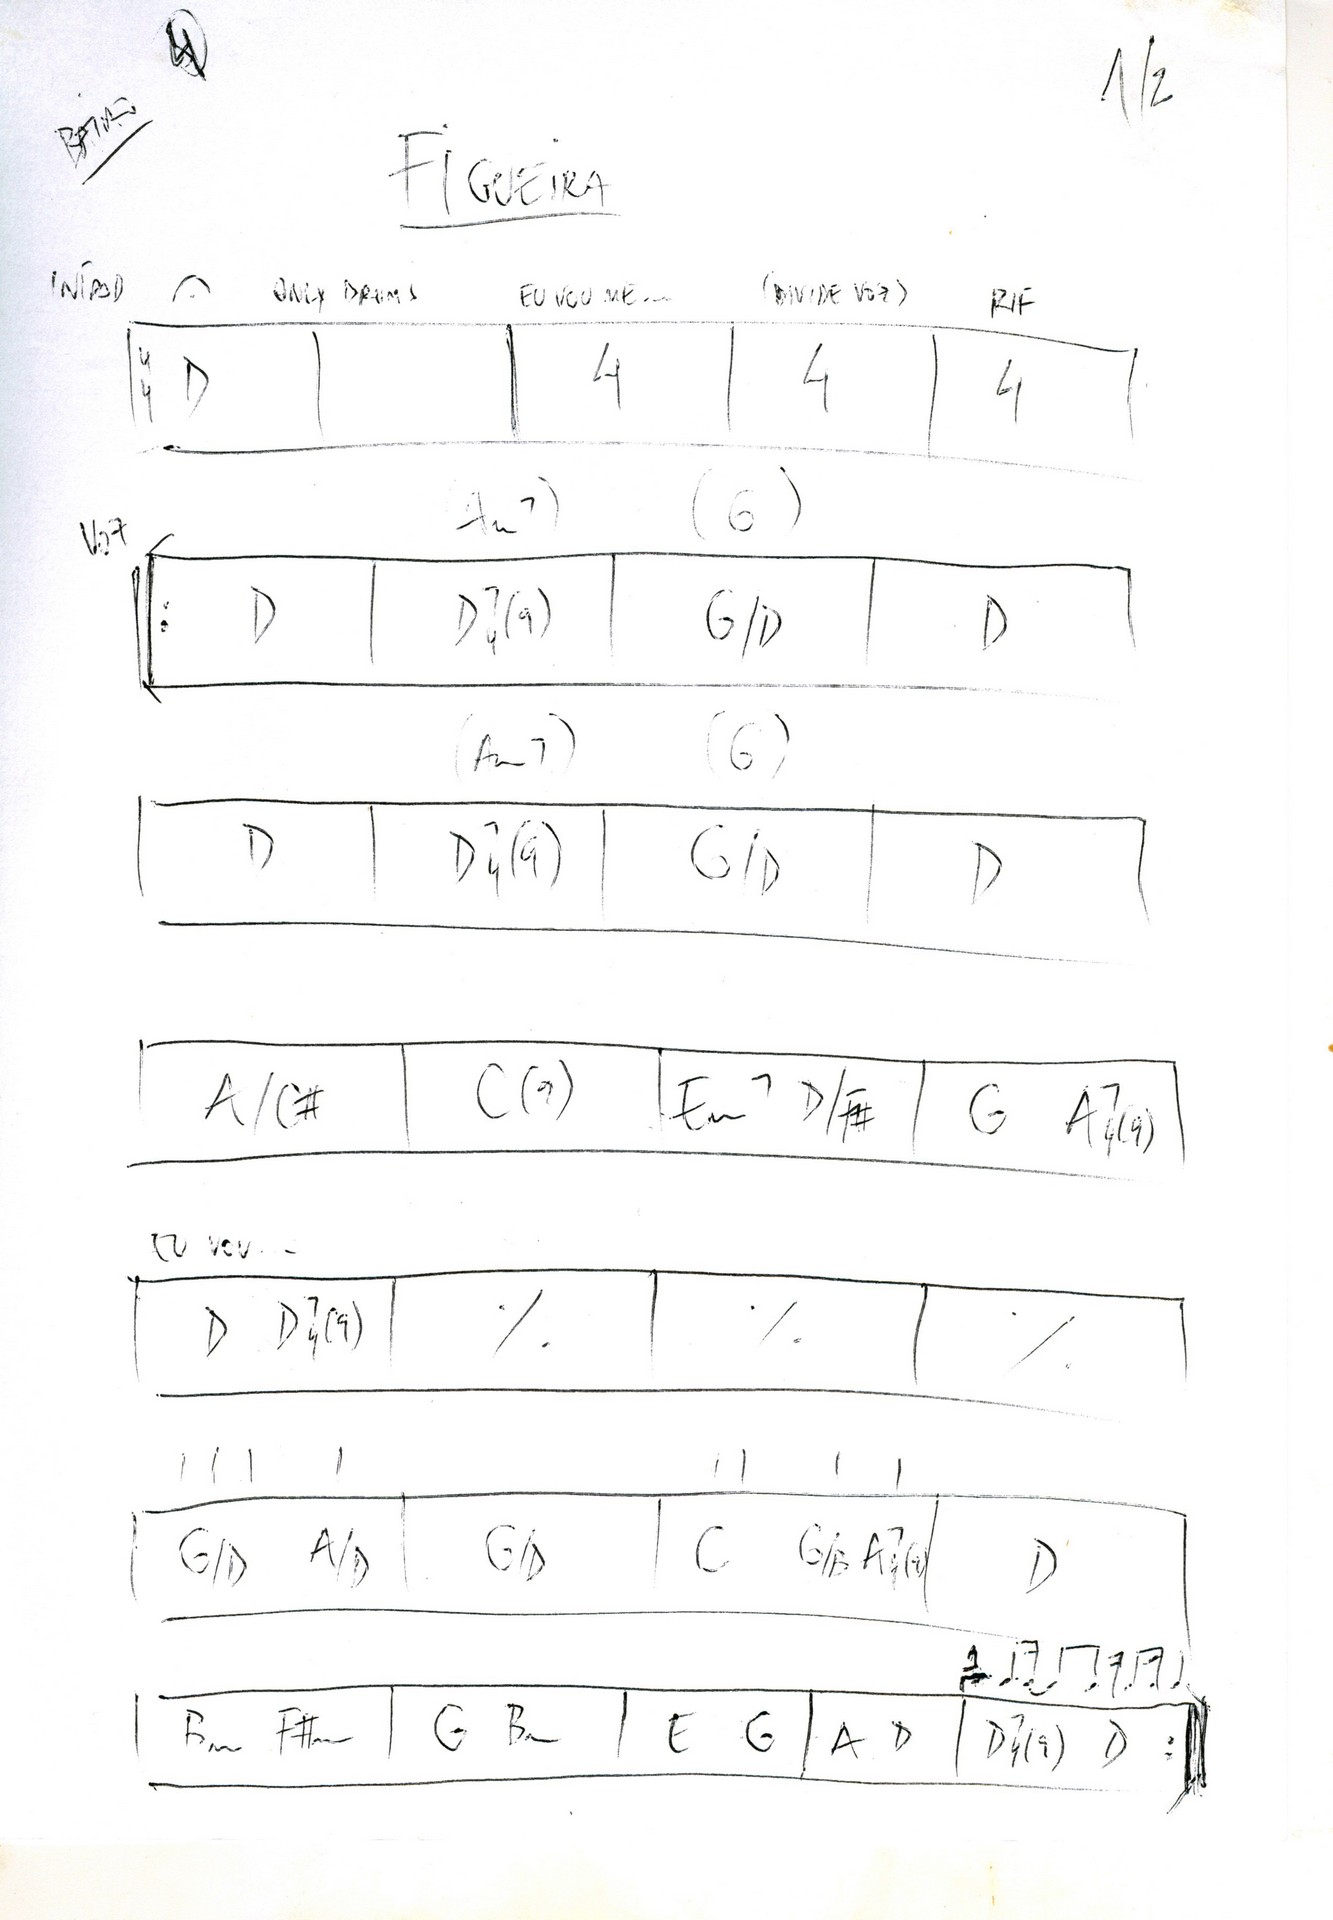 4
1/2
BAIÃO
FIGUEIRA
INTROD ONLY DRUMS EU VOU ME... (DIVIDE VOZ) RIF
4/4 D 4 4 4
(Am7) (G)
VOZ
D D7/4(9) G/D D
(Am7) (G)
D D7/4(9) G/D D
A/C# C(9) Em7 D/F# G A7/4(9)
EU VOU...
D D7/4(9) ٪ ٪ ٪
G/D A/D G/D C G/B A7/4(9) D
Bm F#m G Bm E G A D D7/4(9) D